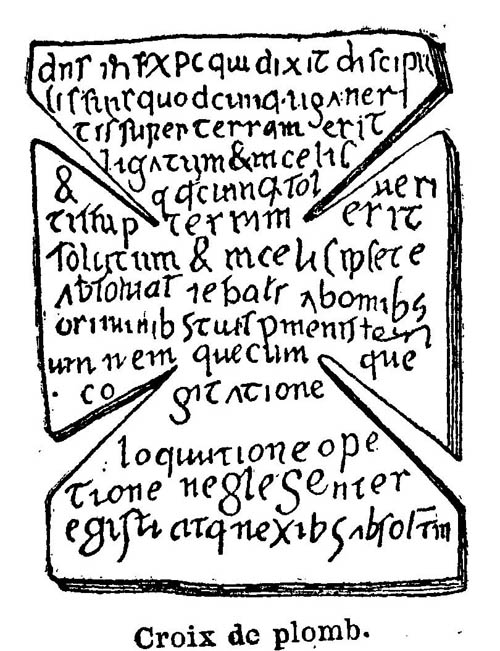 dns ihs XPC qui dixit discipu
lis suis quodcunq ligaver
tis super terram erit
ligatum & in celis
& q qcunnq sol ueri
tis sup terram erit
solutum & in celis ipse te
absoluat ab omnibs
criminibs tuis
um nem quecum que
co gitatione
loquutione ope
tione neglegenter
egisti atq nexibs absoltm
Croix de plomb.